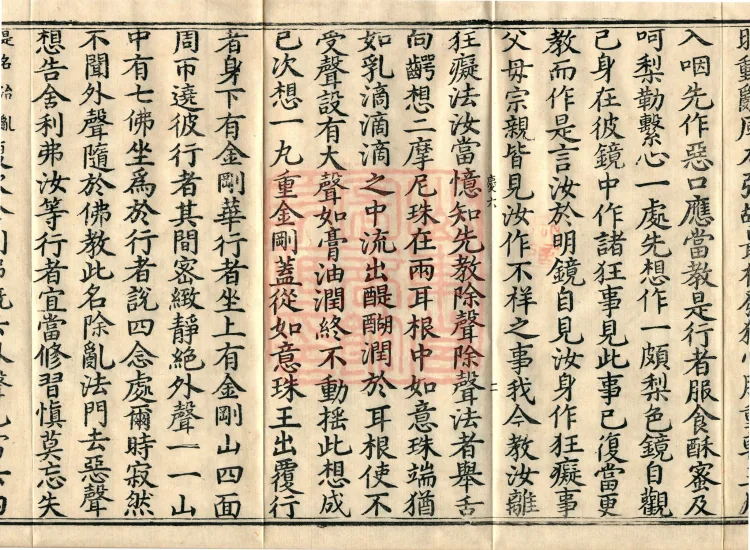 入咽先作惡口應當教是行者服食酥蜜及
呵梨勒繫心一處先想作一頗梨色鏡自觀
己身在彼鏡中作諸狂事見此事已復當更
教而作是言汝於明鏡自見汝身作狂癡事
父母宗親皆見汝作不祥之事我今教汝離
狂癡法汝當憶知先教除聲除聲法者舉舌
向齶想二摩尼珠在兩耳根中如意珠端猶
如乳滴滴滴之中流出醍醐潤於耳根使不
受聲設有大聲如膏油潤終不動搖此想成
已次想一九重金剛蓋從如意珠王出覆行
者身下有金剛華行者坐上有金剛山四面
周帀遶彼行者其間密緻靜絕外聲一一山
中有七佛坐爲於行者說四念處爾時寂然
不聞外聲隨於佛教此名除亂法門去惡聲
想告舍利弗汝等行者宜當修習慎莫忘失